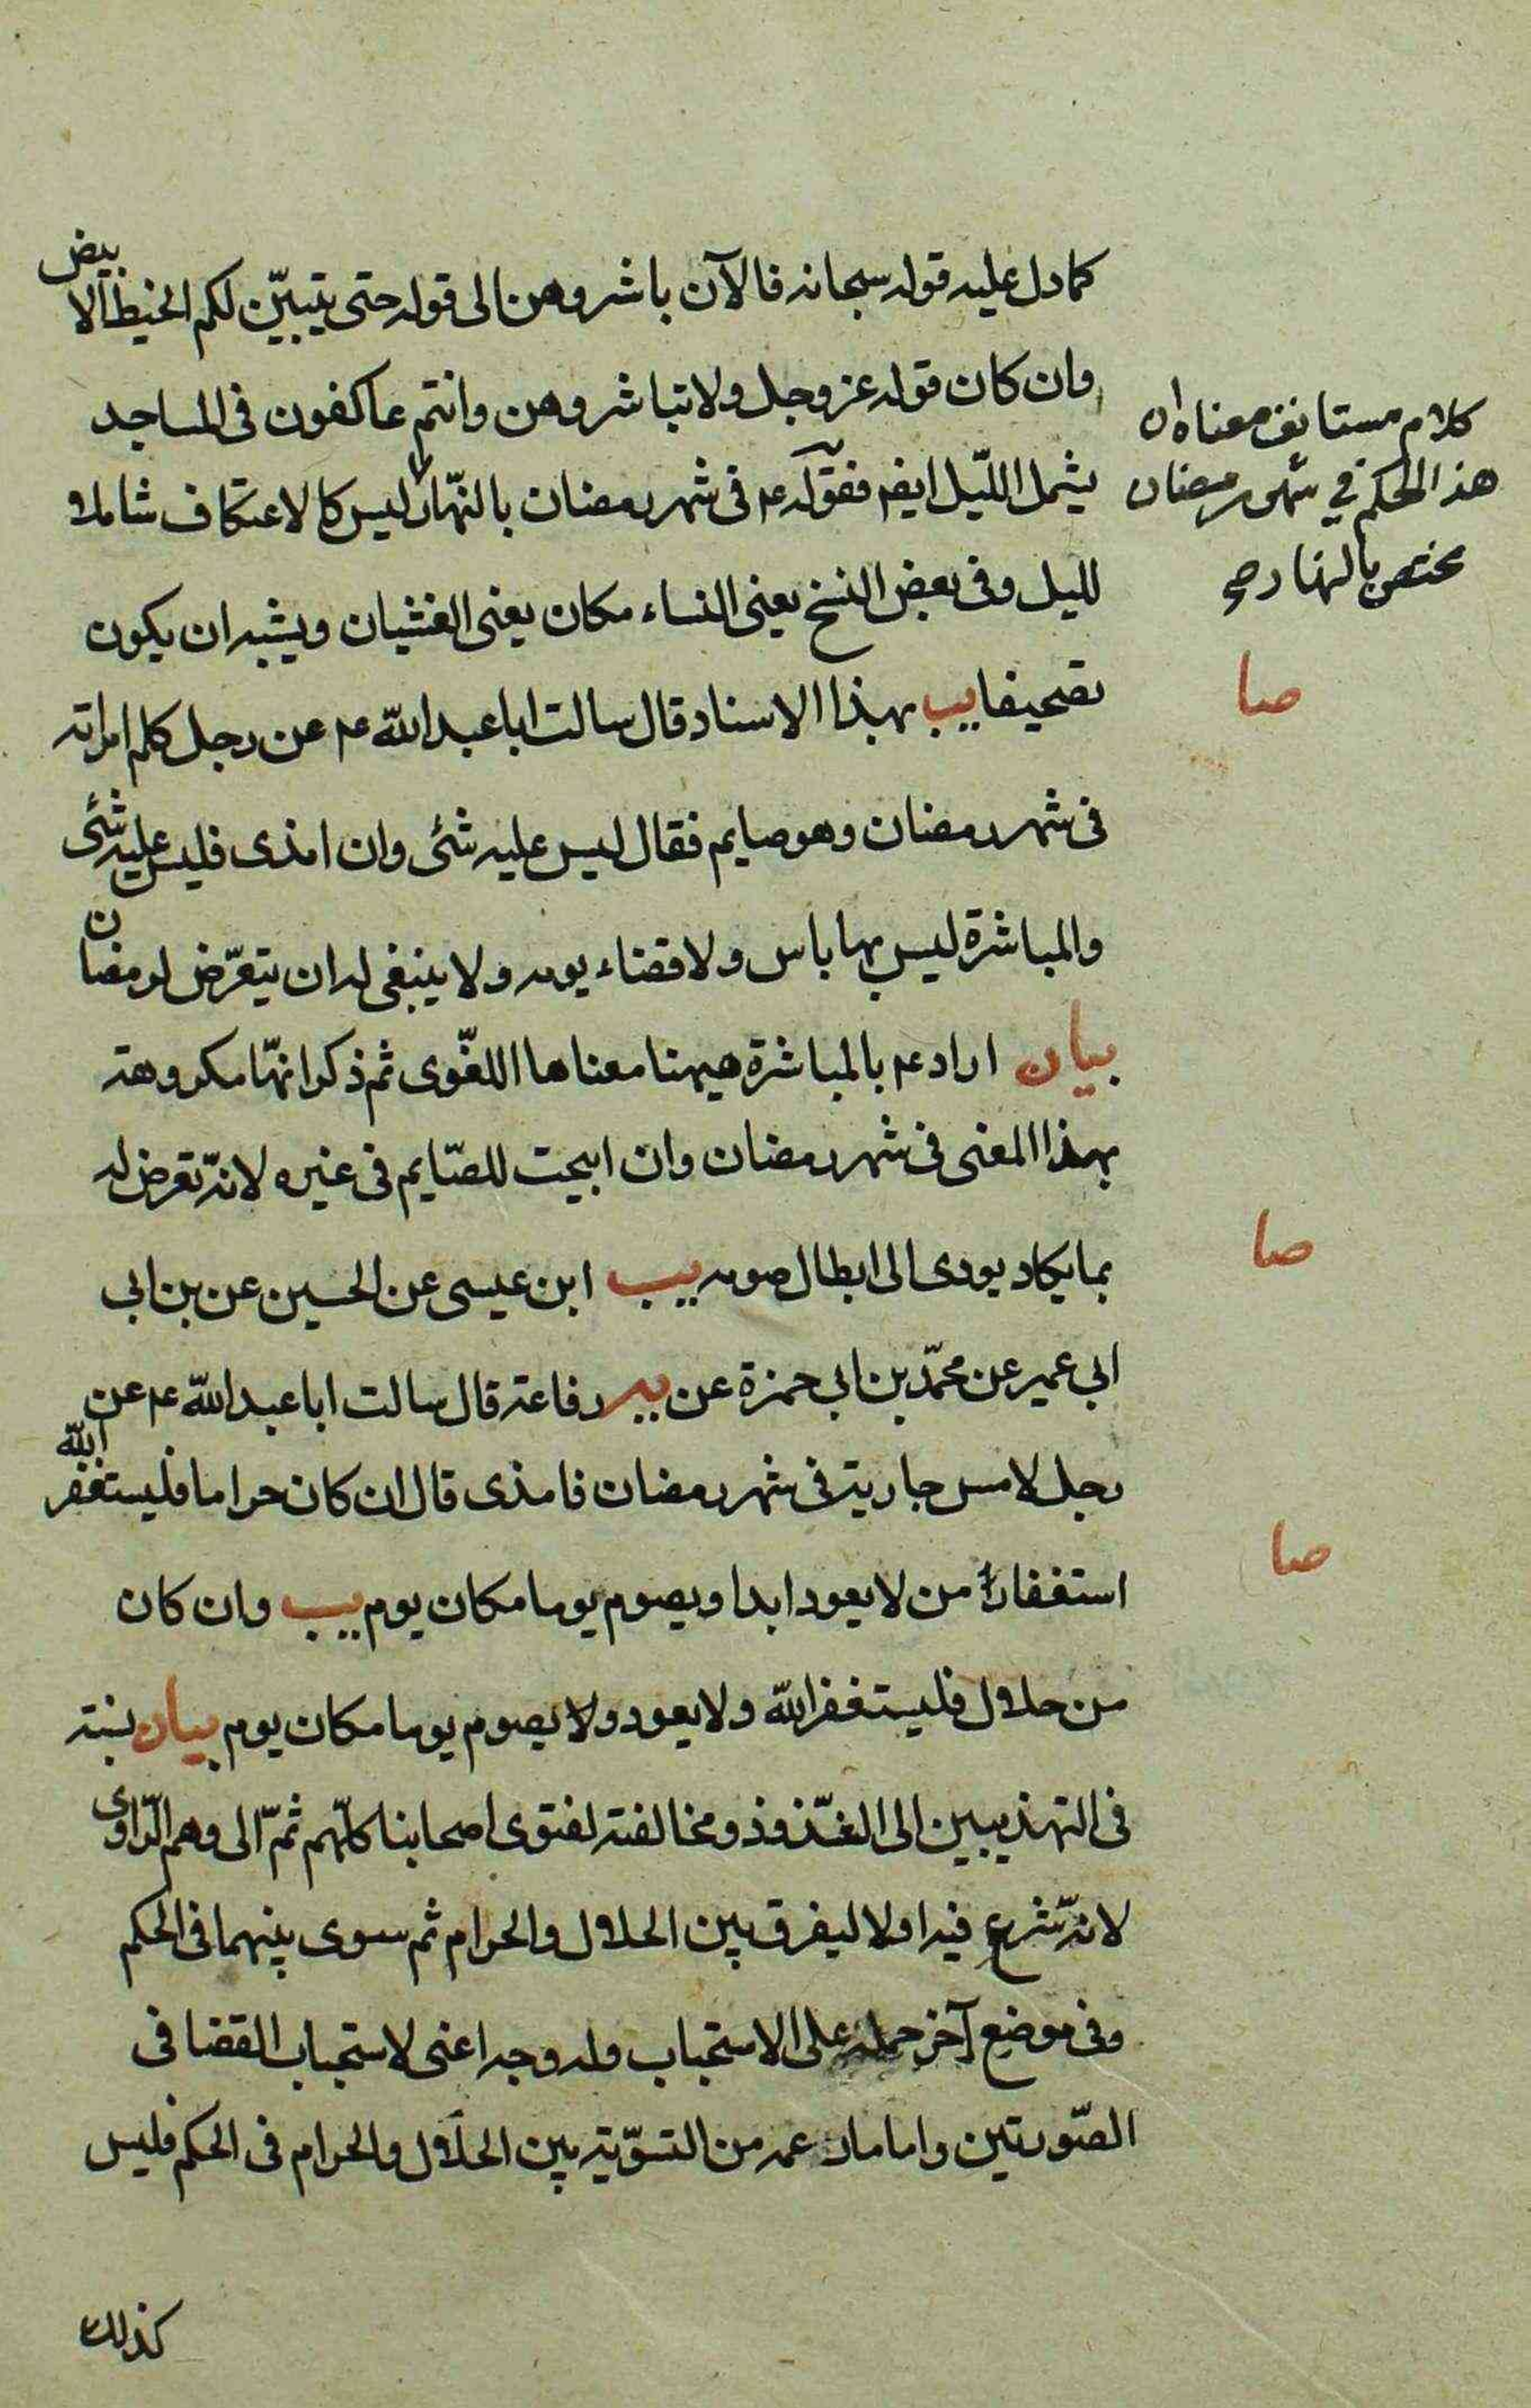 كما دل عليه قوله سبحانه فالآن باشروهن الى قوله حتى يتبيّن لكم الخيط الابيض
وان كان قوله عز وجل ولا تباشروهن وانتم عاكفون فى المساجد
يشمل اللّيل ايضا فقوله ع م فى شهر رمضان بالنّهار ليس كالاعتكاف شاملا
لليل وفى بعض النسخ يعنى النساء مكان يعنى الغشيان ويشبه ان يكون
تصحيفا يب بهذا الاسناد قال سالت ابا عبد اللّه ع م عن رجل كلم امراته
فى شهر رمضان وهو صايم فقال ليس عليه شئى وان امذى فليس عليه شئى
والمباشرة ليس بها باس ولا قضاء يومه ولا ينبغى له ان يتعرّض لرمضان
بيان اراد ع م بالمباشرة هيهنا معناها اللغّوى ثم ذكر انهّا مكروهة
بهذا المعنى فى شهر رمضان وان ابيحت للصّايم فى غيره لانّه تعرض له
بما يكاد يودى الى ابطال صومه يب ابن عيسى عن الحسين عن بن ابى
ابى عمير عن محمّد بن ابى حمزة عن ير رفاعة قال سالت ابا عبد اللّه ع م عن
رجل لامس جارية فى شهر رمضان فامذى قال ان كان حراما فليستغفر اللّه
استغفار من لا يعود ابدا ويصوم يوما مكان يوم يب وان كان
من حلال فليستغفر اللّه ولا يعود ولا يصوم يوما مكان يوم بيان نسبه
فى التهذيبين الى الشّذوذ ومخالفته لفتوى اصحابنا كلّهم ثمّ الى وهم الرّاوى
لانّه شرع فيه اولا ليفرق بين الحلال والحرام ثم سوى بينهما فى الحكم
وفى موضع آخر حمله على الاستحباب وله وجه اعنى لاستحباب القضا فى
الصّورتين واما ما زعمه من التسوّية بين الحلال والحرام فى الحكم فليس
كذلك
كلام مستانف معناه ان
هذا الحكم في شهر رمضان
مختص بالنهار صح
صا
صا
صا